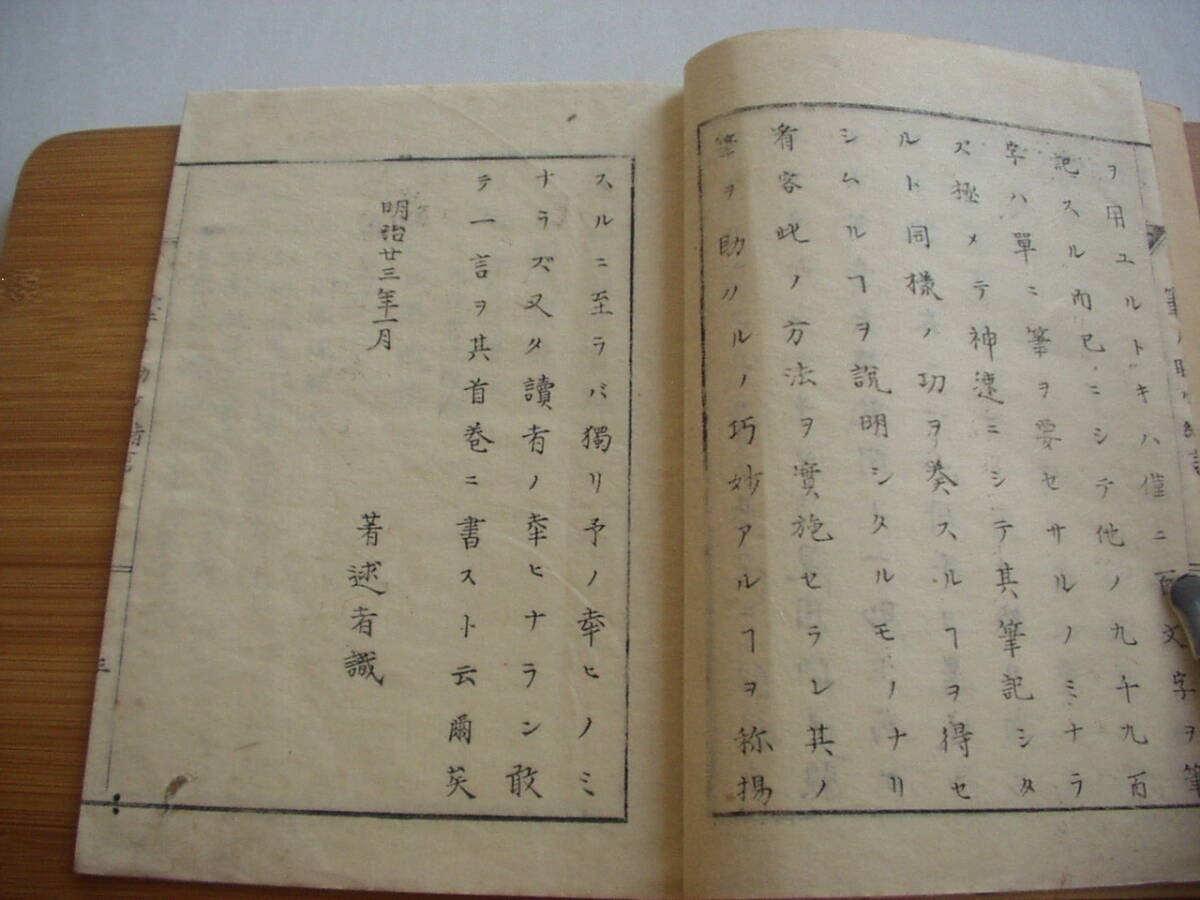 ヲ用ユルトキハ僅ニ百文字ヲ筆
記スル而已ニシテ他ノ九十九百
字ハ單ニ筆ヲ要セサルノミナラ
ズ極メテ神速ニシテ其筆記シタ
ルト同様ノ功ヲ奏スルヿヲ得セ
シムルヿヲ説明シタルモノナリ
看客此ノ方法ヲ實施セラレ其ノ
筆ヲ助ハルノ巧妙アルヿヲ称揚
スルニ至ラバ獨リ予ノ幸ヒノミ
ナラズ又タ讀者ノ幸ヒナラン敢
テ一言ヲ其首巻ニ書スト云爾矣
明治廿三年一月
著述者識